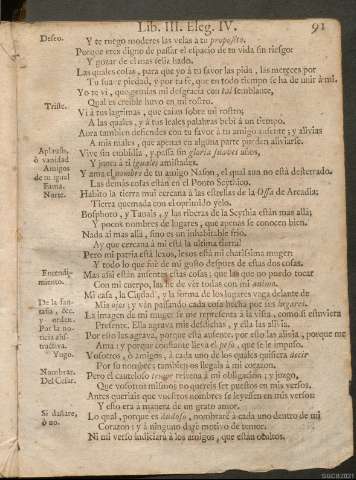 Lib. III. Eleg. IV. 91
Deseo. Y te ruego moderes las velas à tu proposito.
Porque eres digno de passar el espacio de tu vida sin riesgo:
Y gozar de el mas feliz hado.
Las quales cosas, para que yo à tu favor las pida, las mereces por
Tu suave piedad, y por tu fè, que en todo tiempo se ha de unir à mi.
Yo te vi, que gemias mi desgracia con tal semblante,
Triste. Qual es creible huvo en mi rostro.
Vi à tus lagrimas, que caian sobre mi rostro;
A las quales, y à tus leales palabras bebi à un tiempo.
Aora tambien defiendes con tu favor à tu amigo ; y alivias
A mis males, que apenas en alguna parte pueden aliviarse.
Aplauso, Vive sin embidia, y passa sin gloria suaves años,
ò vanidad Y junta à ti iguales amistades.
Amigos Y ama el nombre de tu amigo Nason, el qual aun no està desterrado.
de tu igual Las demás cosas estàn en el Ponto Scythico.
Fama. Habito la tierra mui cercana à las estrellas de la Ossa de Arcadia;
Norte. Tierra quemada con el oprimido yelo.
Bosphoro, y Tanais, y las riberas de la Scythia estàn mas allà;
Y pocos nombres de lugares, que apenas se conocen bien.
Nada ai mas allà, sino es un inhabitable frio.
Ay que cercana à mi està la ultima tierra!
Pero mi patria està lexos, lexos està mi charissima muger:
Y todo lo que fuè de mi gusto despues de estas dos cosas.
Entendi- Mas assi estàn ausentes estas cosas; que las que no puedo tocar
miento. Con mi cuerpo, las he de ver todas con mi anima.
Mi casa, la Ciudad, y la forma de los lugares vaga delante de
De la fan- Mis ojos; y vàn passando cada cosa hecha por sus lugares.
tasia, &c. La imagen de mi muger se me representa à la vista, como si estuviera
y orden. Presente. Ella agrava mis desdichas, y ella las alivia.
Por la no- Por esto las agrava, porque està ausente, por esto las alivia, porque me
ticia abs- Ama: y porque constante lleva el peso, que se le impuso.
tractiva.
Yugo. Vosotros, ò amigos, à cada uno de los quales quisiera decir
Por su nombre; tambien os llegais à mi corazon.
Nombrar. Pero el cauteloso temor retiene à mi obligacion; y juzgo,
Del Cesar. Que vosotros mismos no quereis ser puestos en mis versos.
Antes queriais que vuestros nombres se leyessen en mis versos:
Y esto era à manera de un grato amor.
Si dañarè, Lo qual, porque es dudoso, nombrarè à cada uno dentro de mi
ò no. Corazon: y à ninguno darè motivo de temor.
Ni mi verso indiciarà à los amigos, que estàn ocultos.